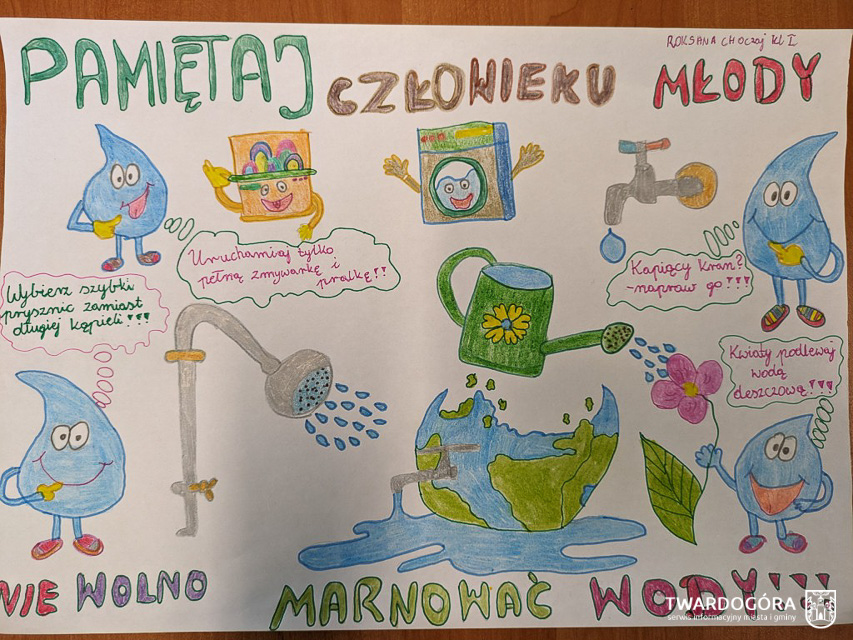 ROKSANA CHOCZAJ KL I
PAMIĘTAJ CZŁOWIEKU MŁODY
Uruchamiaj tylko
pełną zmywarkę i
pralkę!!
Kapiący kran?
-napraw go!!!
Wybierz szybki
prysznic zamiast
długiej kąpieli!!!
Kwiaty podlewaj
wodą
deszczową!!!
NIE WOLNO MARNOWAĆ WODY!!!
TWARDOGÓRA
serwis informacyjny miasta i gminy